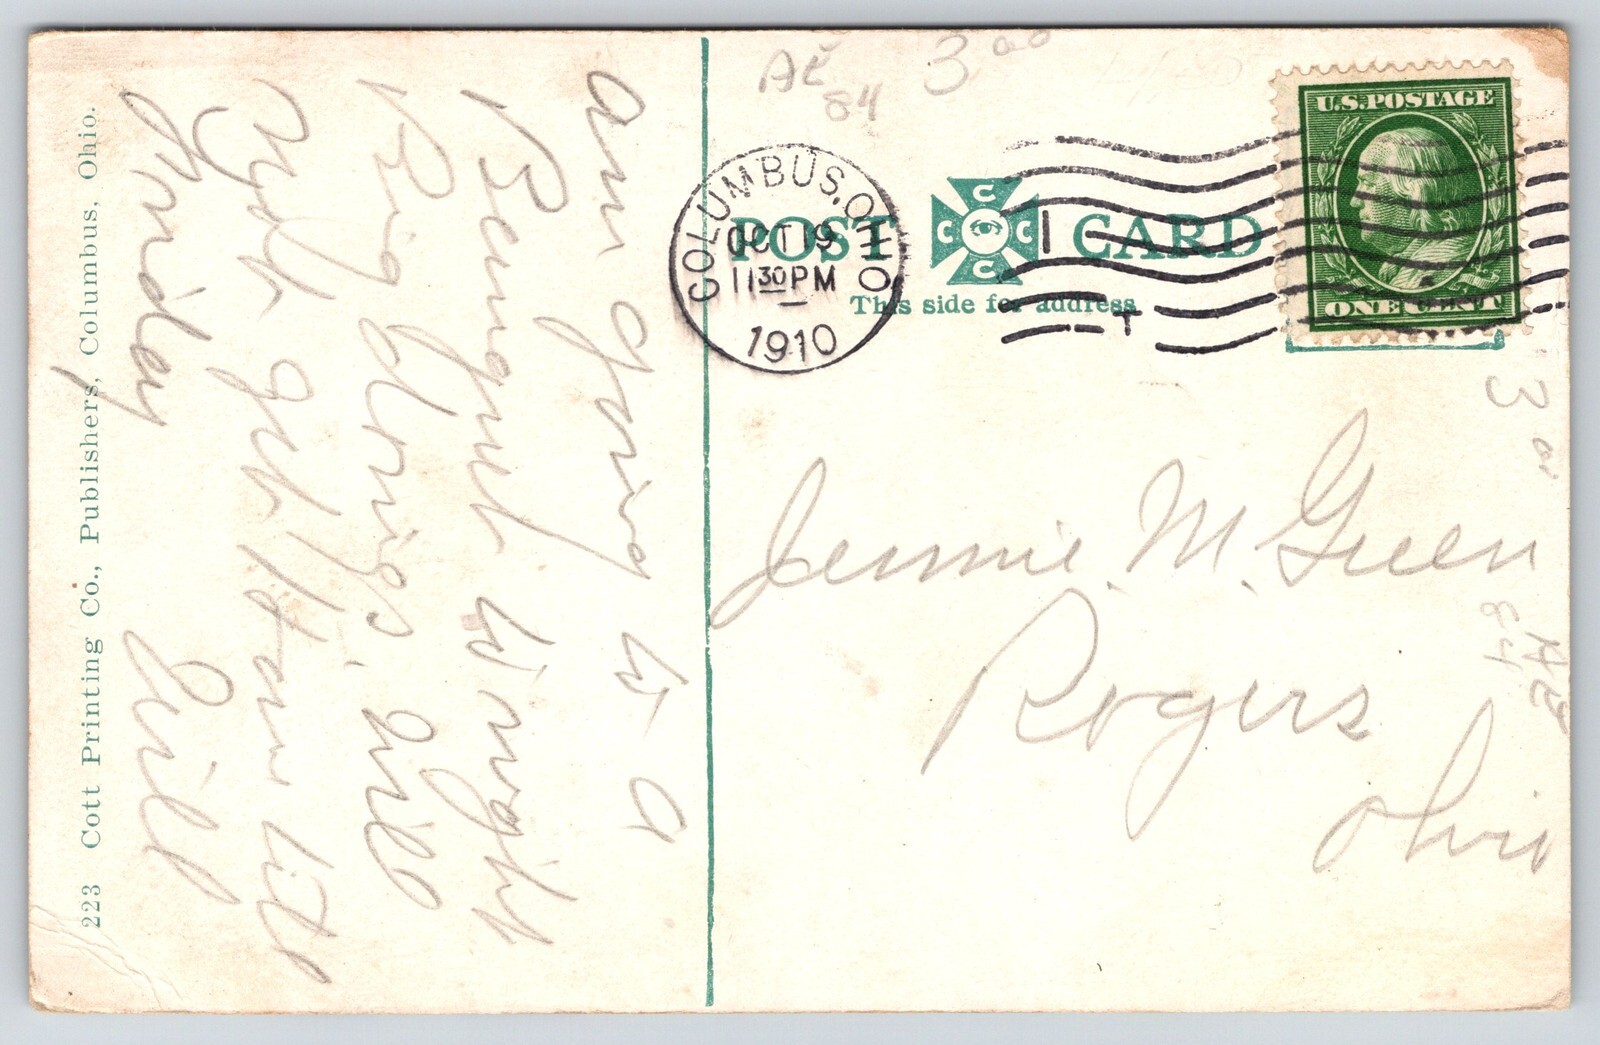 Am going to a
Banquet to night
Big doings, Will
not get Home till
Friday
Will
223 Cott Printing Co., Publishers, Columbus, Ohio.
AE
84
3 00
COLUMBUS, OHIO.
OCT 19
11 30 PM
1910
POST CARD
C C C C
This side for address
T
U.S.POSTAGE
ONE CENT
Jennie M. Green
Rogers
Ohio
3 00
AE
84